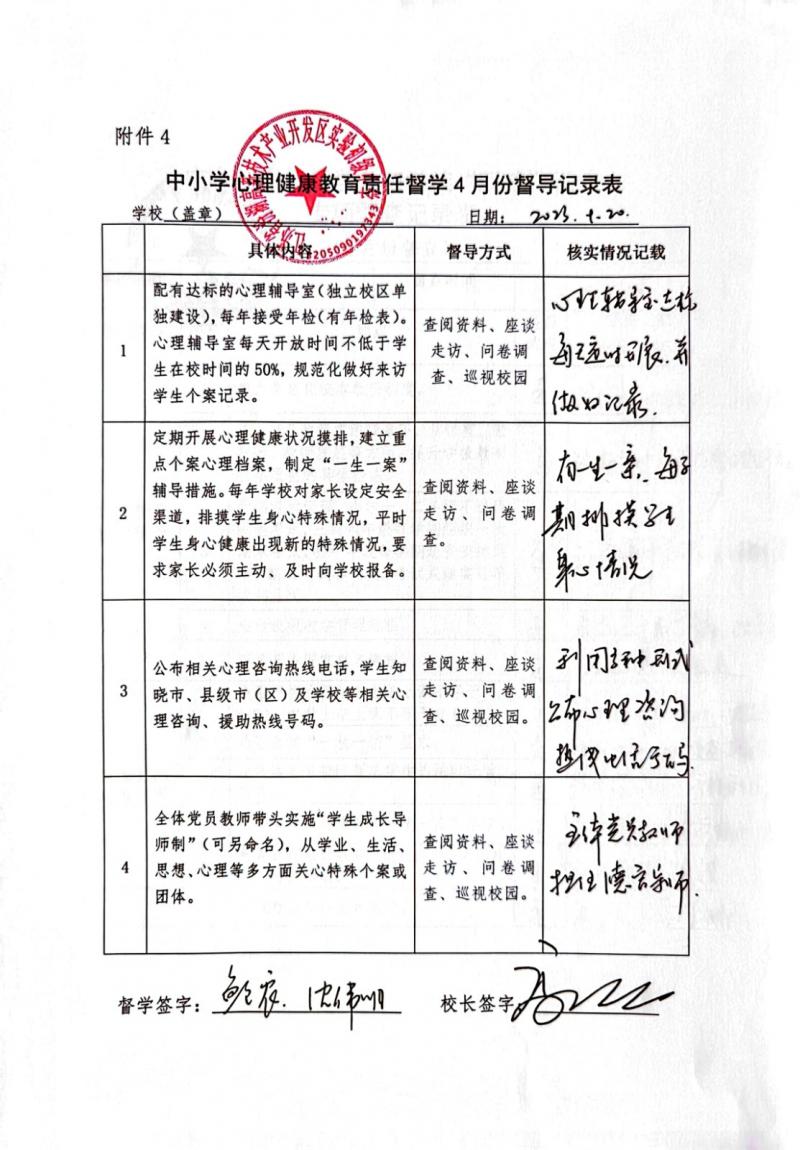 附件 4
中小学心理健康教育责任督学 4 月份督导记录表
学校（盖章）
日期：2023.4.20.
具体内容
督导方式
核实情况记载
1
配有达标的心理辅导室（独立校区单
独建设），每年接受年检（有年检表）。
心理辅导室每天开放时间不低于学
生在校时间的 50%，规范化做好来访
学生个案记录。
查阅资料、座谈
走访、问卷调
查、巡视校园
心理辅导室达标
每天适时开展.并
做好记录.
2
定期开展心理健康状况摸排，建立重
点个案心理档案，制定“一生一案”
辅导措施。每年学校对家长设定安全
渠道，排摸学生身心特殊情况，平时
学生身心健康出现新的特殊情况，要
求家长必须主动、及时向学校报备。
查阅资料、座谈
走访、问卷调
查。
有一生一案.每学
期排摸学生
身心情况
3
公布相关心理咨询热线电话，学生知
晓市、县级市（区）及学校等相关心
理咨询、援助热线号码。
查阅资料、座谈
走访、问卷调
查、巡视校园。
利用多种形式
公布心理咨询
热线电话号码.
4
全体党员教师带头实施“学生成长导
师制”（可另命名），从学业、生活、
思想、心理等多方面关心特殊个案或
团体。
查阅资料、座谈
走访、问卷调
查、巡视校园。
全体党员教师
担任德育导师.
督学签字：沈伟明
校长签字